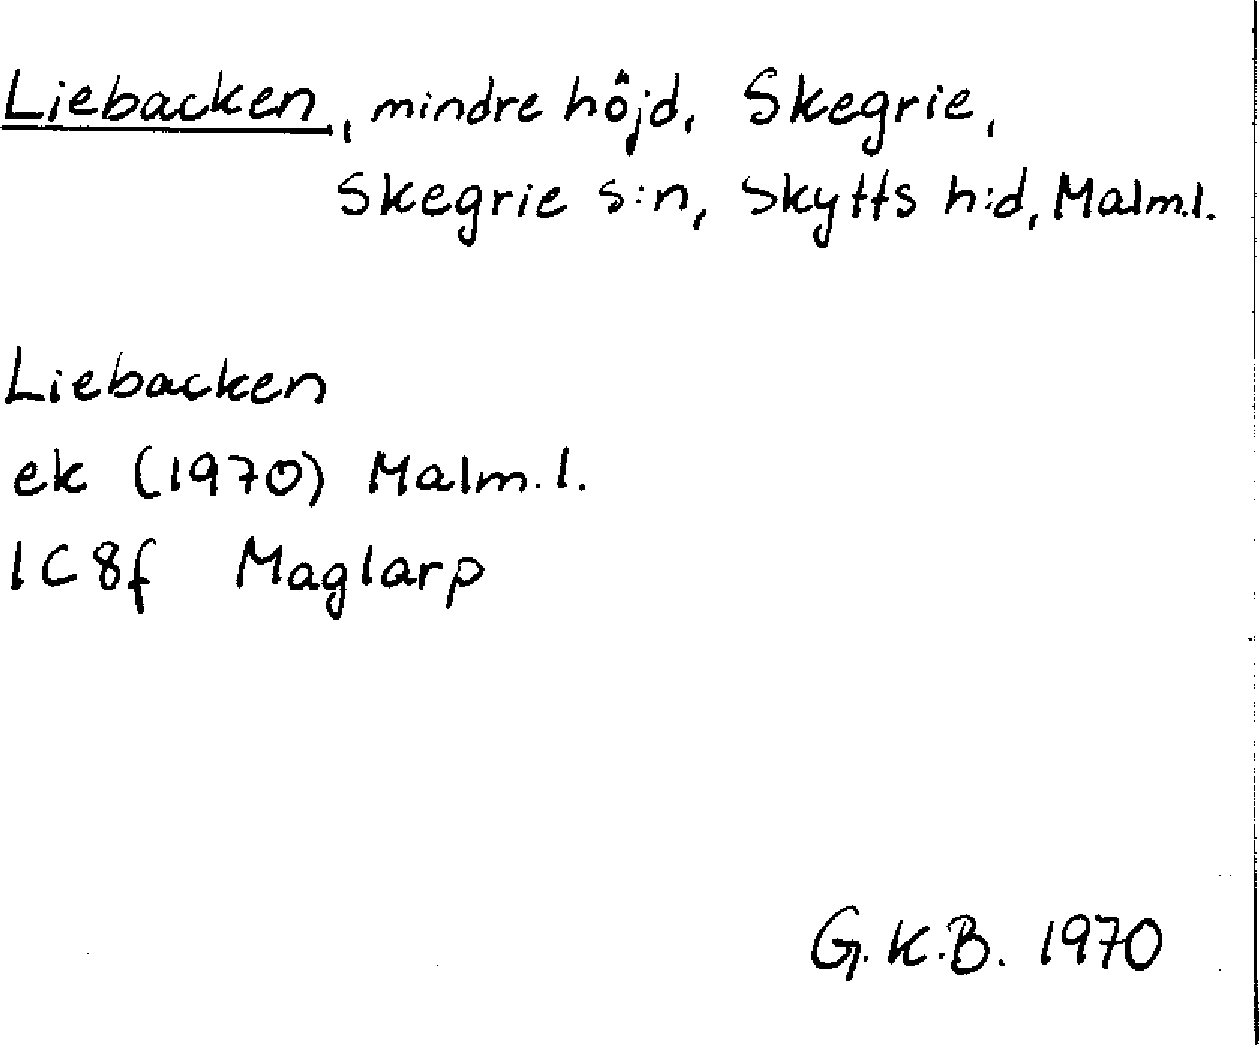 Liebacken, mindre höjd, Skegrie,
Skegrie s:n, Skytts h:d, Malm.l.
Liebacken
ek (1970) Malm.l.
1C8f Maglarp
G.K.B. 1970